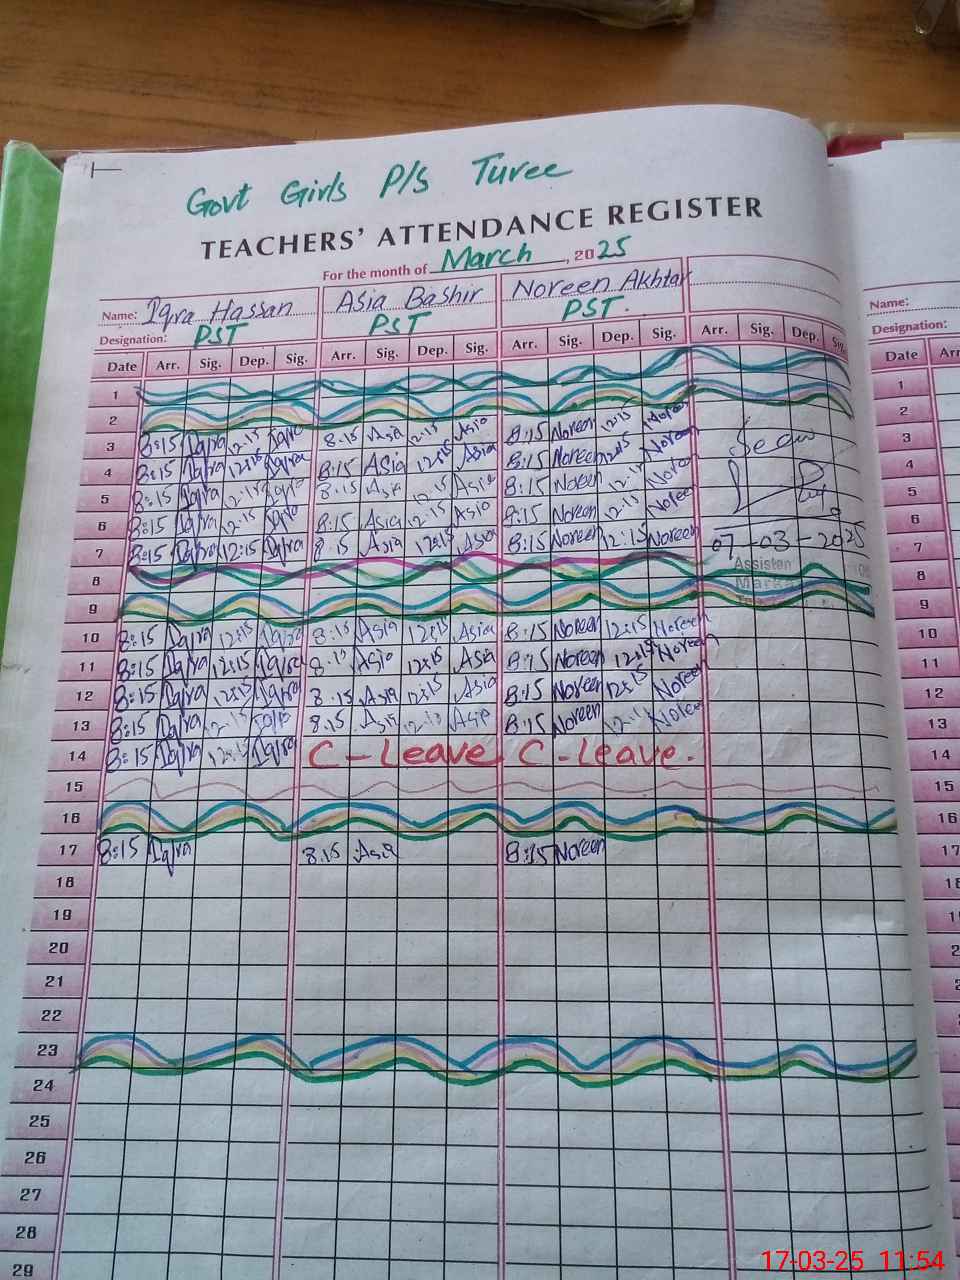 Govt Girls P/S Turee
TEACHERS' ATTENDANCE REGISTER
For the month of March, 2025
Name: Iqra Hassan Asia Bashir Noreen Akhtar
Designation: PST PST PST.
Date Arr. Sig. Dep. Sig. Arr. Sig. Dep. Sig. Arr. Sig. Dep. Sig. Arr. Sig. Dep. Sig.
1
2
3 8:15 Iqra 12:15 Iqra 8:15 Asia 12:15 Asia 8:15 Noreen 12:15 Noreen
4 8:15 Iqra 12:15 Iqra 8:15 Asia 12:15 Asia 8:15 Noreen 12:15 Noreen Seen
5 8:15 Iqra 12:15 Iqra 8:15 Asia 12:15 Asia 8:15 Noreen 12:15 Noreen
6 8:15 Iqra 12:15 Iqra 8:15 Asia 12:15 Asia 8:15 Noreen 12:15 Noreen
7 8:15 Iqra 12:15 Iqra 8:15 Asia 12:15 Asia 8:15 Noreen 12:15 Noreen 07-03-2025
8
9
10 8:15 Iqra 12:15 Iqra 8:15 Asia 12:15 Asia 8:15 Noreen 12:15 Noreen
11 8:15 Iqra 12:15 Iqra 8:15 Asia 12:15 Asia 8:15 Noreen 12:15 Noreen
12 8:15 Iqra 12:15 Iqra 8:15 Asia 12:15 Asia 8:15 Noreen 12:15 Noreen
13 8:15 Iqra 12:15 Iqra 8:15 Asia 12:15 Asia 8:15 Noreen 12:15 Noreen
14 8:15 Iqra 12:15 Iqra C-Leave C-Leave.
15
16
17 8:15 Iqra 8:15 Asia 8:15 Noreen
18
19
20
21
22
23
24
25
26
27
28
29
Name:
Designation:
Date
1
2
3
4
5
6
7
8
9
10
11
12
13
14
15
16
17
17-03-25 11:54